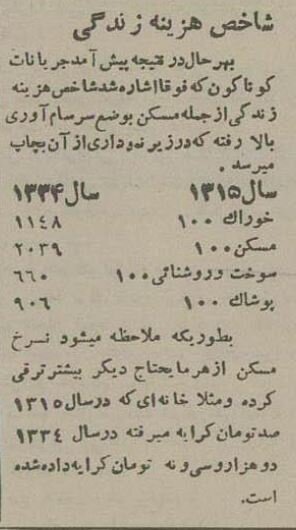 شاخص هزینه زندگی
بهرحال در نتیجه پیش آمد جریانات
گوناگون که فوقا اشاره شد شاخص هزینه
زندگی از جمله مسکن بوضع سرسام آوری
بالا رفته که در زیر نموداری از آن بچاپ
میرسد.
سال ۱۳۱۵ سال ۱۳۳۴
خوراك ۱۰۰ ۱۱۴۸
مسکن ۱۰۰ ۲۰۳۹
سوخت و روشنائی ۱۰۰ ۶۶۰
پوشاك ۱۰۰ ۹۰۶
بطوریکه ملاحظه میشود نسرخ
مسکن از هر مایحتاج دیگر بیشتر ترقی
کرده و مثلا خانه‌ای که در سال ۱۳۱۵
صد تومان کرایه میرفته در سال ۱۳۳۴
دو هزار و سی و نه تومان کرایه داده شده
است.